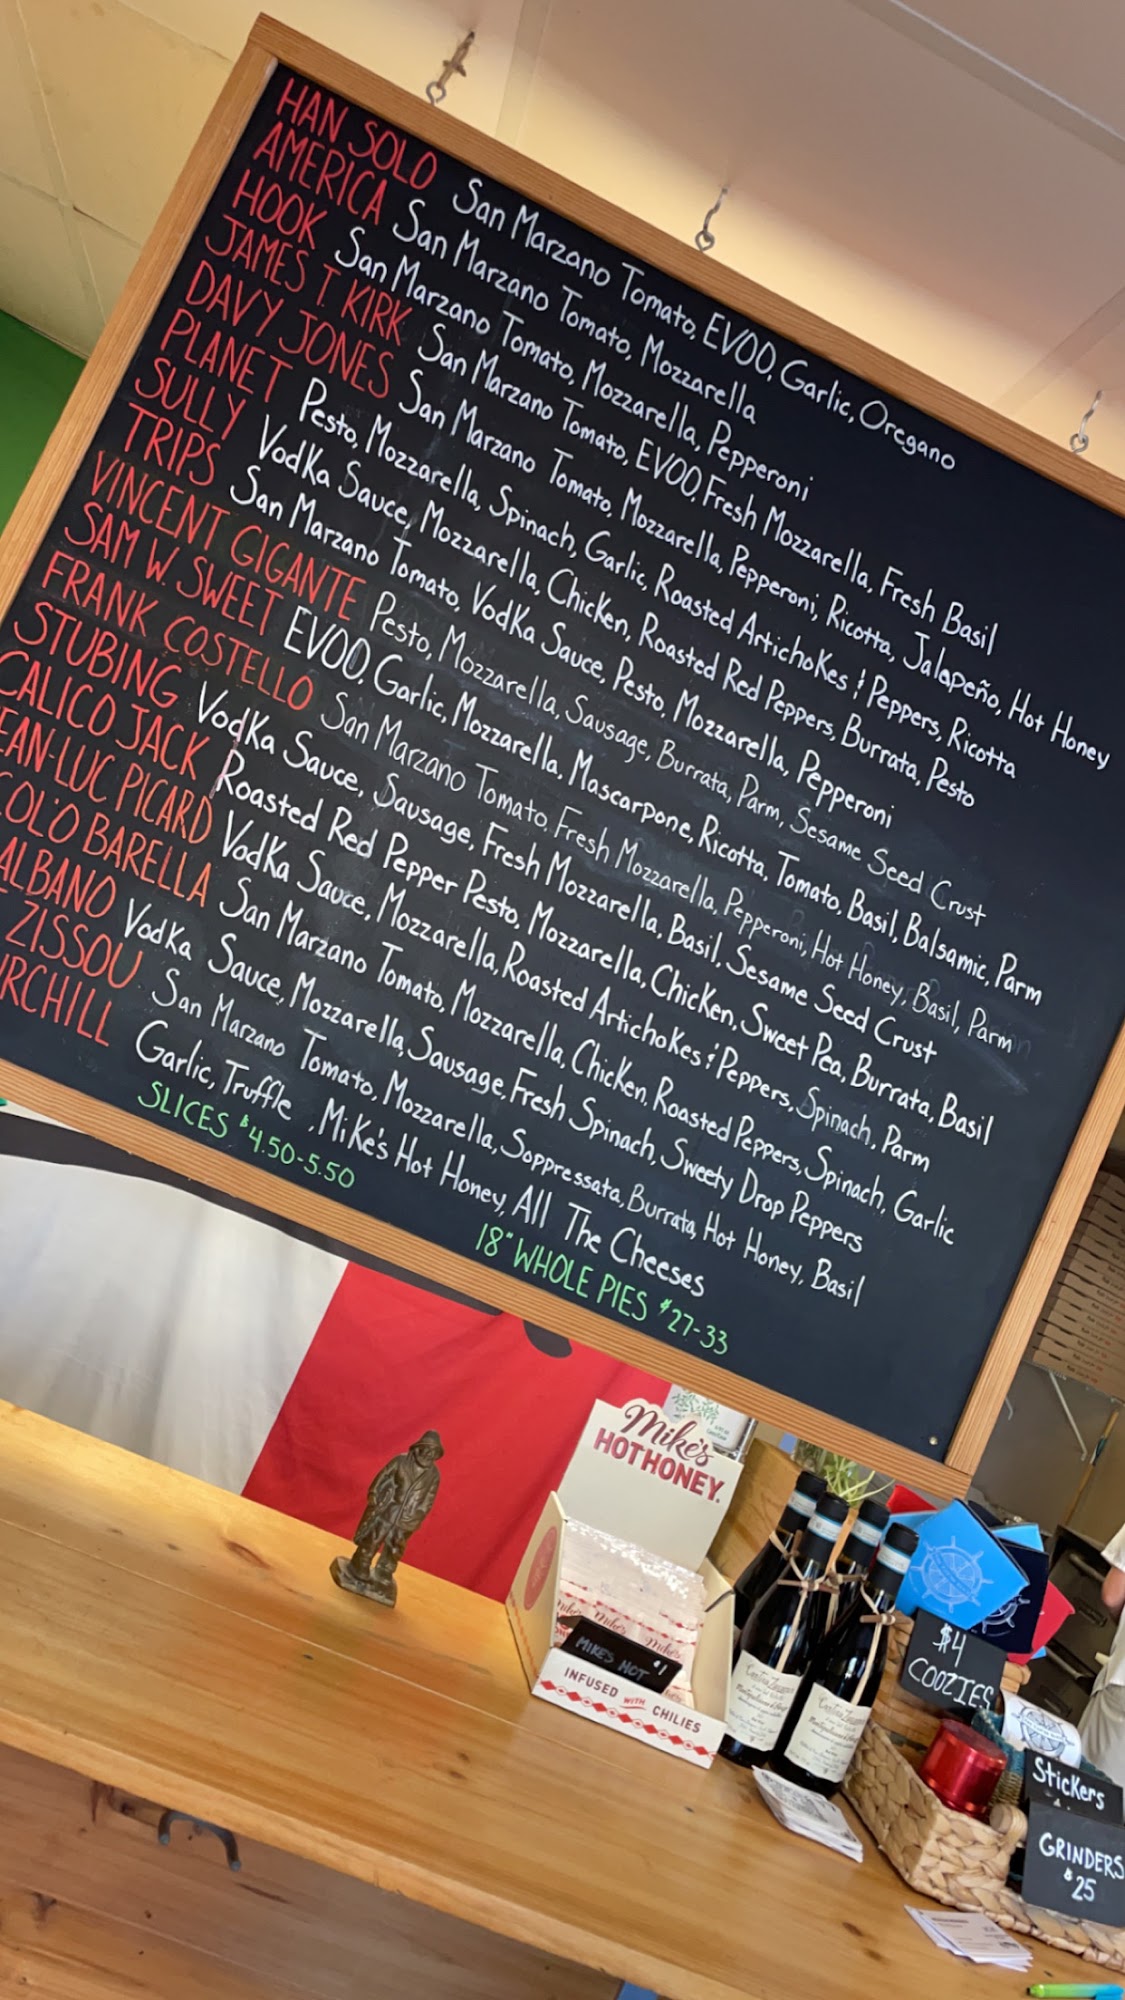 HAN SOLO San Marzano Tomato, EVOO, Garlic, Oregano
AMERICA San Marzano Tomato, Mozzarella
HOOK San Marzano Tomato, Mozzarella, Pepperoni
JAMES T. KIRK San Marzano Tomato, EVOO, Fresh Mozzarella, Fresh Basil
DAVY JONES San Marzano Tomato, Mozzarella, Pepperoni, Ricotta, Jalapeño, Hot Honey
PLANET Pesto, Mozzarella, Spinach, Garlic, Roasted Artichokes & Peppers, Ricotta
SULLY Vodka Sauce, Mozzarella, Chicken, Roasted Red Peppers, Burrata, Pesto
TRIPS San Marzano Tomato, Vodka Sauce, Pesto, Mozzarella, Pepperoni
VINCENT GIGANTE Pesto, Mozzarella, Sausage, Burrata, Parm, Sesame Seed Crust
SAM W. SWEET EVOO, Garlic, Mozzarella, Mascarpone, Ricotta, Tomato, Basil, Balsamic, Parm
FRANK COSTELLO San Marzano Tomato, Fresh Mozzarella, Pepperoni, Hot Honey, Basil, Parm
STUBING Vodka Sauce, Sausage, Fresh Mozzarella, Basil, Sesame Seed Crust
CALICO JACK Roasted Red Pepper Pesto, Mozzarella, Chicken, Sweet Pea, Burrata, Basil
EAN-LUC PICARD Vodka Sauce, Mozzarella, Roasted Artichokes & Peppers, Spinach, Parm
OL'O BARELLA San Marzano Tomato, Mozzarella, Chicken, Roasted Peppers, Spinach, Garlic
ALBANO Vodka Sauce, Mozzarella, Sausage, Fresh Spinach, Sweety Drop Peppers
ZISSOU San Marzano Tomato, Mozzarella, Soppressata, Burrata, Hot Honey, Basil
RCHILL Garlic, Truffle , Mike's Hot Honey, All The Cheeses
SLICES $4.50-5.50
18" WHOLE PIES $27-33
Mike's
HOT HONEY
MIKES HOT $1
INFUSED WITH CHILIES
$4
COOZIES
Stickers
GRINDERS
$25